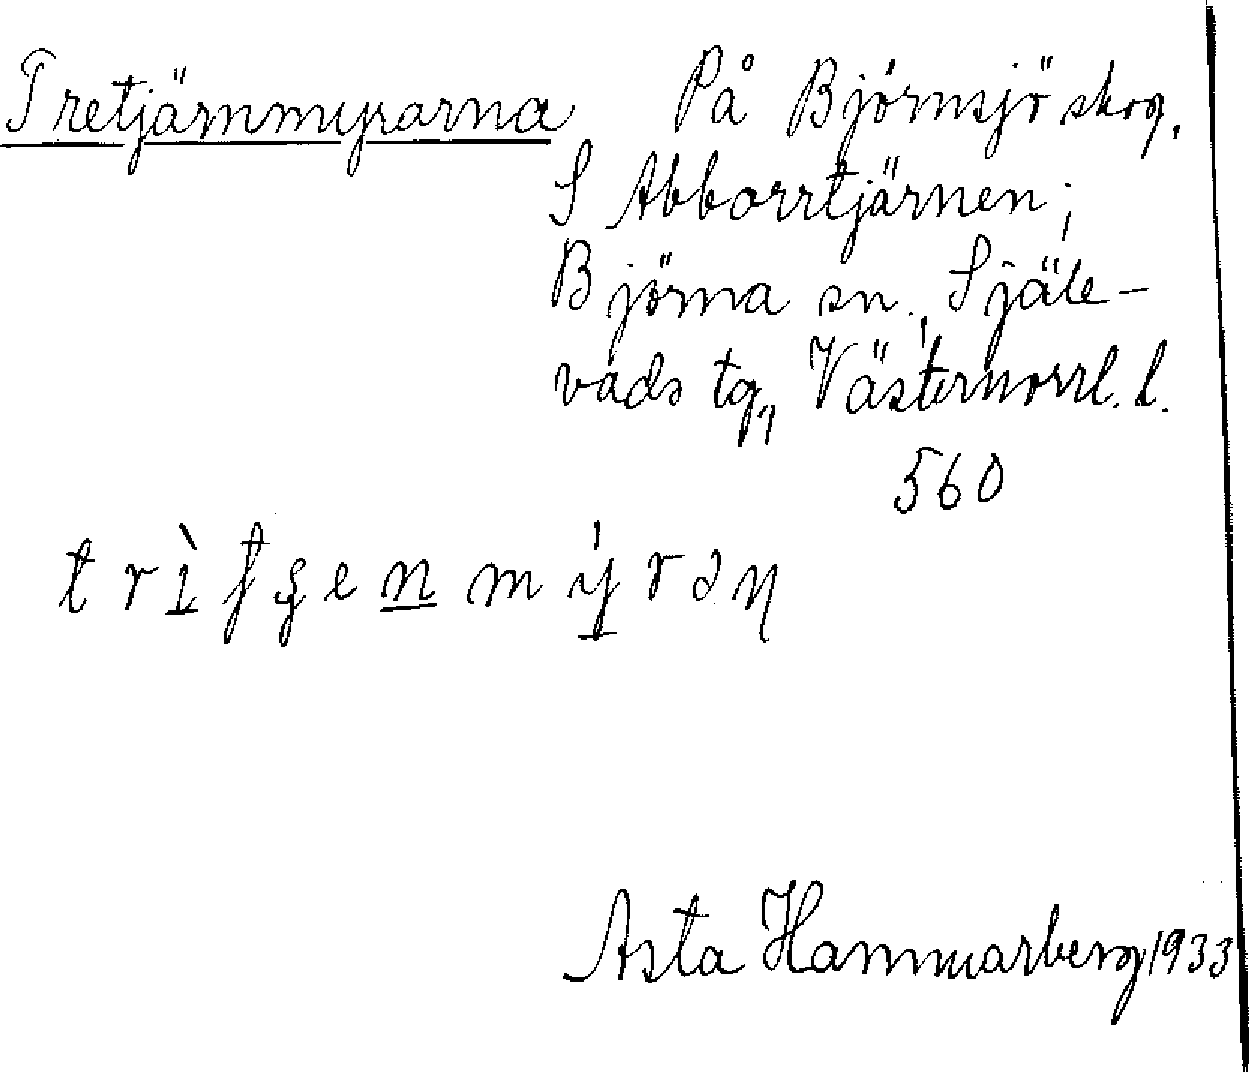 Tretjärnmyrarna På Björnsjö skog.
S Abborrtjärnen;
Björna sn., Själe-
vads tg, Västernorrl. l.
560
Asta Hammarberg 1933